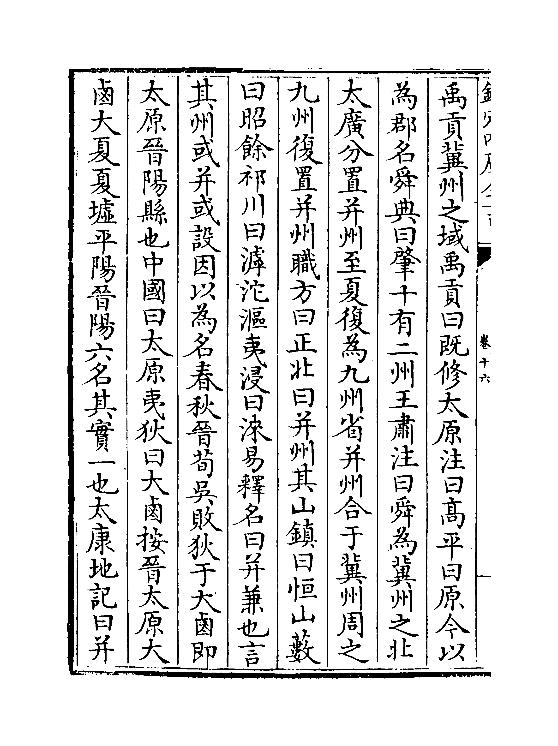 卷十六
禹貢冀州之域禹貢曰既修太原注曰髙平曰原今以
為郡名舜典曰肇十有二州王肅注曰舜為冀州之北
太廣分置并州至夏復為九州省并州合于冀州周之
九州復置并州職方曰正北曰并州其山鎮曰恒山藪
曰昭餘祁川曰滹沱漚夷浸曰淶易釋名曰并兼也言
其州或并或設因以為名春秋晉荀吳敗狄于大鹵即
太原晉陽縣也中國曰太原夷狄曰大鹵按晉太原大
鹵大夏夏墟平陽晉陽六名其實一也太康地記曰并